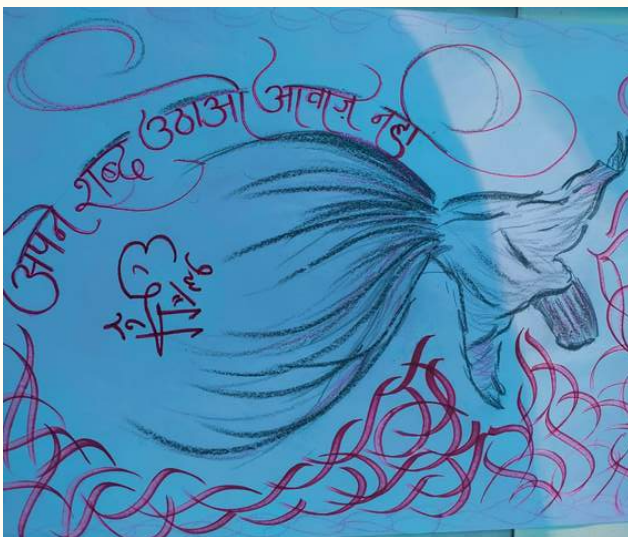 अपने शब्द उठाओ आवाज़ नहीं